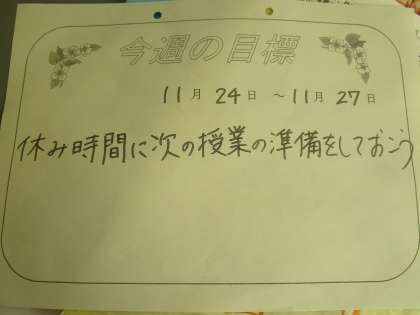 今週の目標
11月 24日 ～11月 27日
休み時間に次の授業の準備をしておこう